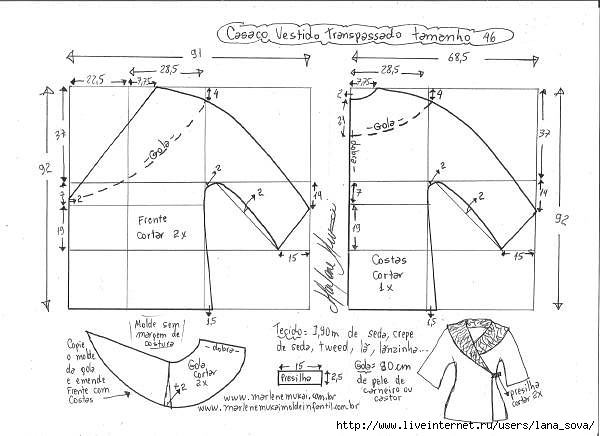 Casaco Vestido Transpassado tamanho 46
91
68,5
28,5
28,5
22,5
7,75
7,75
4
2
4
37
21
37
92
92
- Gola -
- Gola -
dobra
2
2
7
2
2
2
14
7
14
19
19
Frente
cortar 2x
15
Costas
cortar
1x
15
1,5
1,5
Marlene Mukai
Molde sem
margem de
costura
Copie
o molde
da gola
e emende
Frente com
Costas
- dobra -
Gola
cortar
2x
2
Tecido = 1,90m de seda, crepe
de seda, tweed, lã, lanzinha...
15
Presilha
2,5
Gola = 80cm
de pele de
carneiro ou
castor
presilha
cortar 2x
www.marlenemukai.com.br
www.marlenemukaimoldeinfantil.com.br
http://www.liveinternet.ru/users/lana_sova/